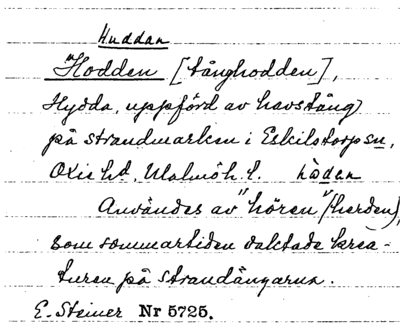 Huddan
"Hodden [tånghodden],
Hydda, uppförd av havstång
på strandmarken i Eskilstorps sn,
Oxie hd, Malmöh. l. hòdan
Användes av "hören" (herden),
som sommartiden vaktade krea-
turen på strandängarna.
E. Steiner Nr 5725.